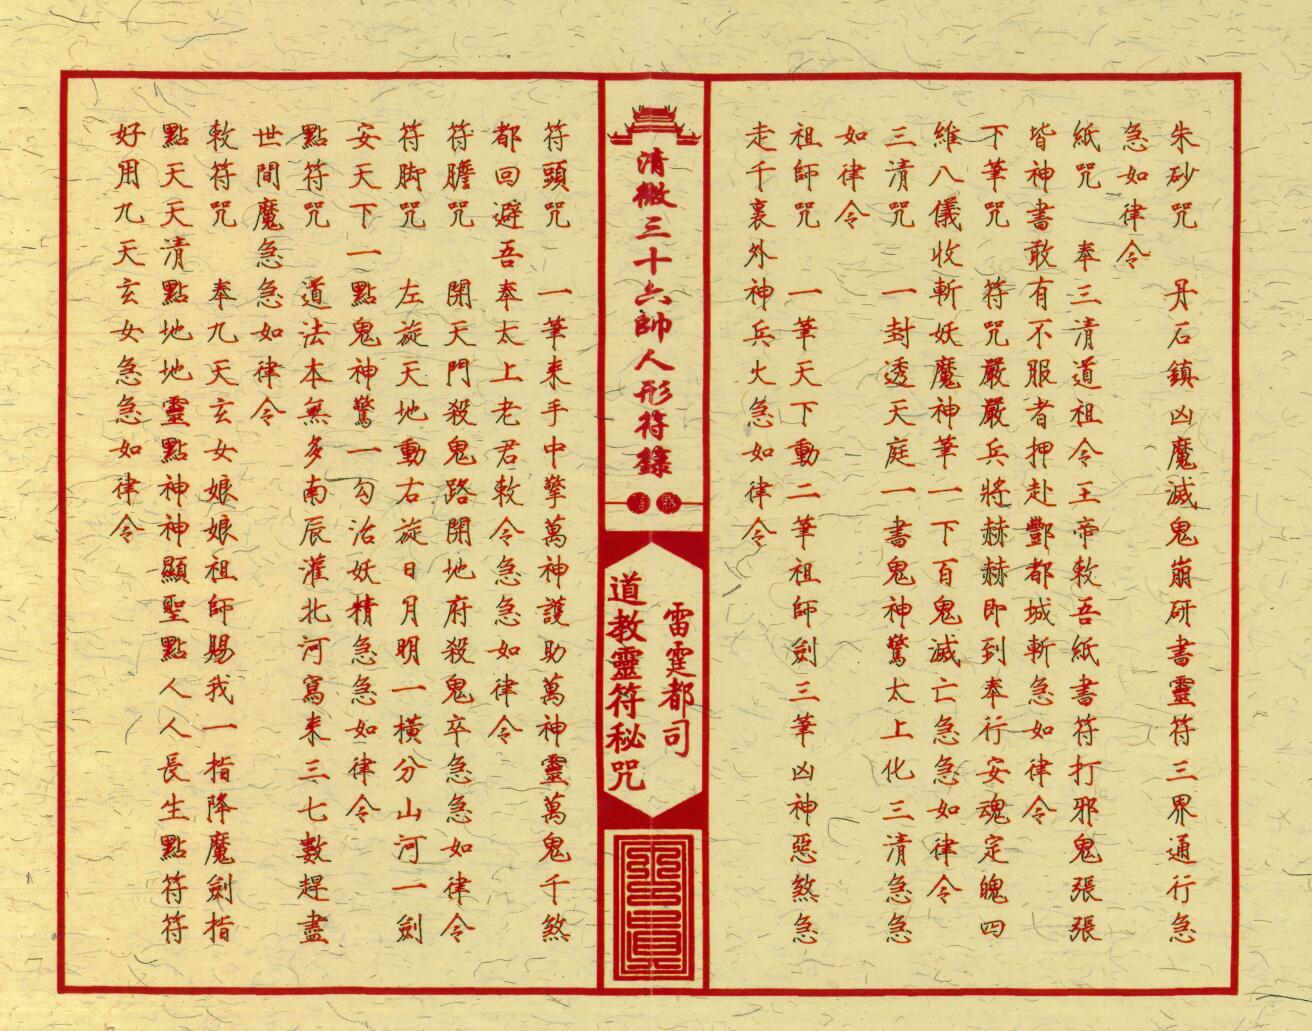 朱砂咒 丹石鎮凶魔滅鬼崩研書靈符三界通行急
急如律令
紙咒 奉三清道祖令王帝敕吾紙書符打邪鬼張張
皆神書敢有不服者押赴酆都城斬急如律令
下筆咒 符咒嚴嚴兵將赫赫即到奉行安魂定魄四
維八儀收斬妖魔神筆一下百鬼滅亡急急如律令
三清咒 一封透天庭一書鬼神驚太上化三清急急
如律令
祖師咒 一筆天下動二筆祖師劍三筆凶神惡煞急
走千裏外神兵火急如律令
清微三十六帥人形符籙
雷霆都司
道教靈符秘咒
符頭咒 一筆来手中擎萬神護助萬神靈萬鬼千煞
都回避吾奉太上老君敕令急急如律令
符膽咒 開天門殺鬼路開地府殺鬼卒急急如律令
符脚咒 左旋天地動右旋日月明一橫分山河一劍
安天下一點鬼神驚一勾治妖精急急如律令
點符咒 道法本無多南辰灌北河寫来三七數趕盡
世間魔急急如律令
敕符咒 奉九天玄女娘娘祖師賜我一指降魔劍指
點天天清點地地靈點神神顯聖點人人長生點符符
好用九天玄女急急如律令